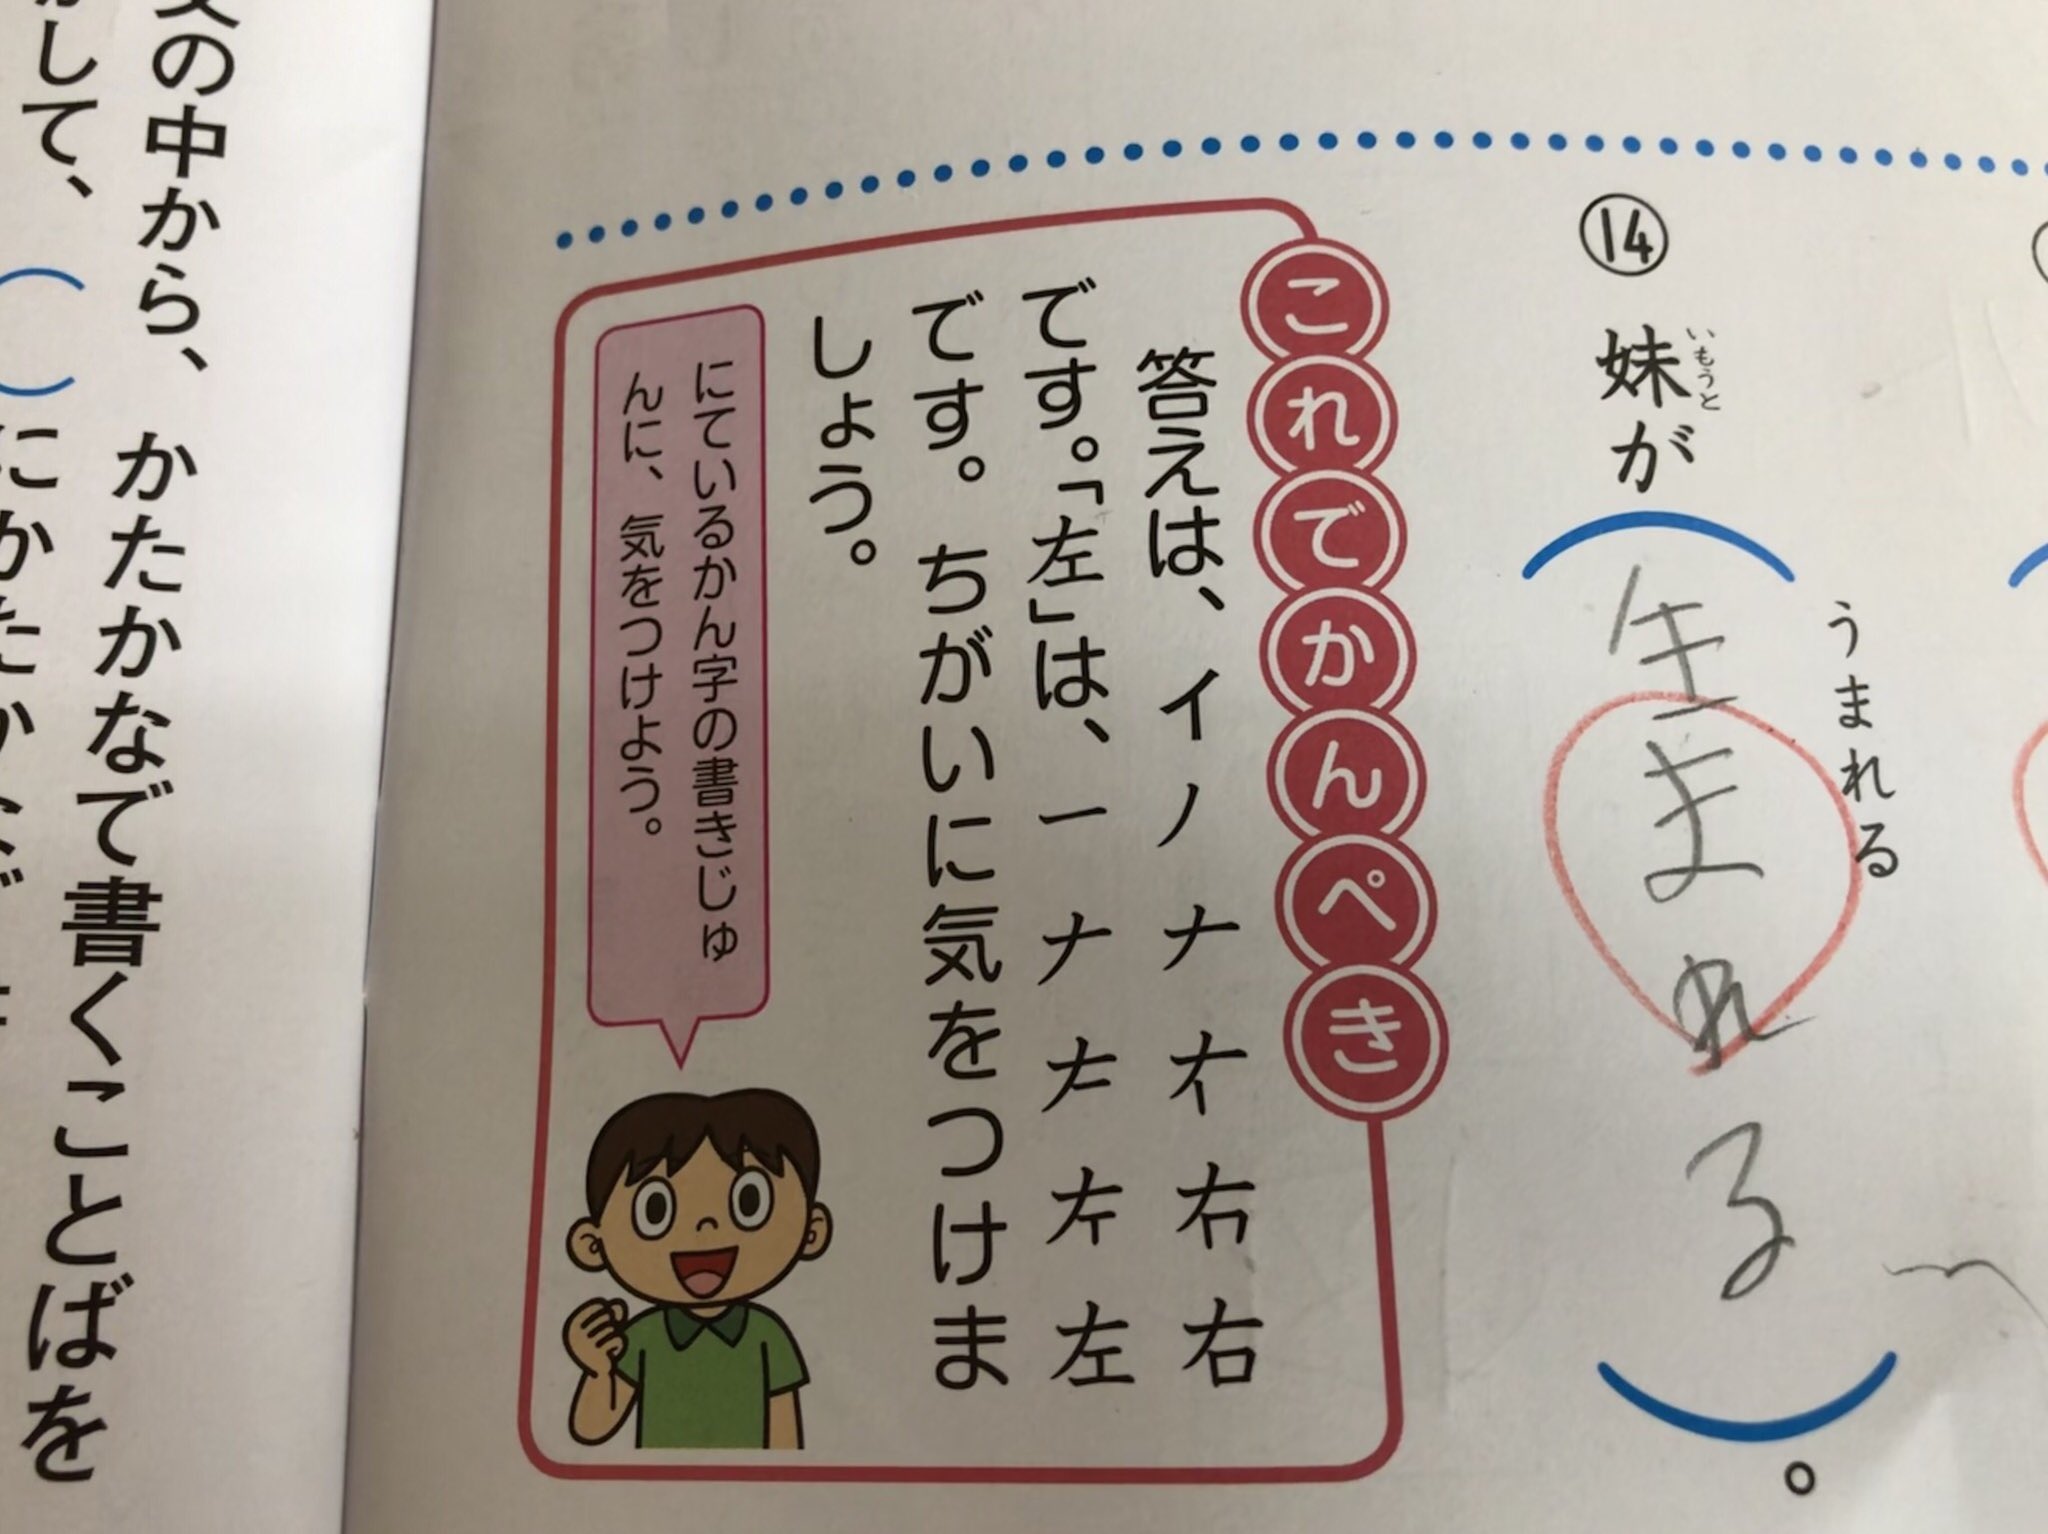 うまれる
いもうと
⑭ 妹が(生まれる)。
これでかんぺき
答えは、イ ノ ナ オ 右 右
です。「左」は、一 ナ 𠂇 左 左
です。ちがいに気をつけま
しょう。
にているかん字の書きじゅ
んに、気をつけよう。
文の中から、かたかなで書くことばを
して、( )にかたかな